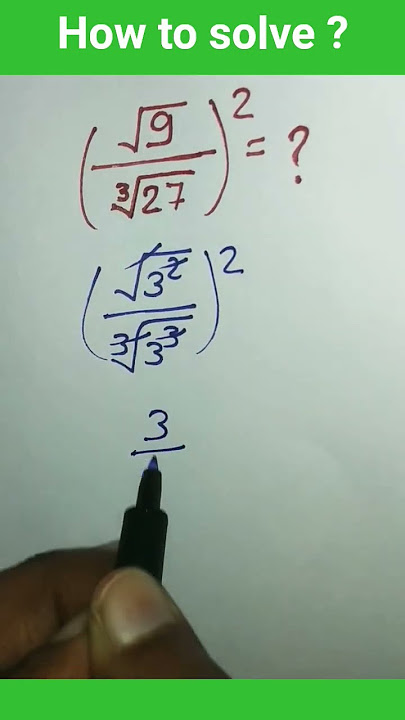 How to solve ?
(√9/∛27)² = ?
(√3²/∛3³)²
3